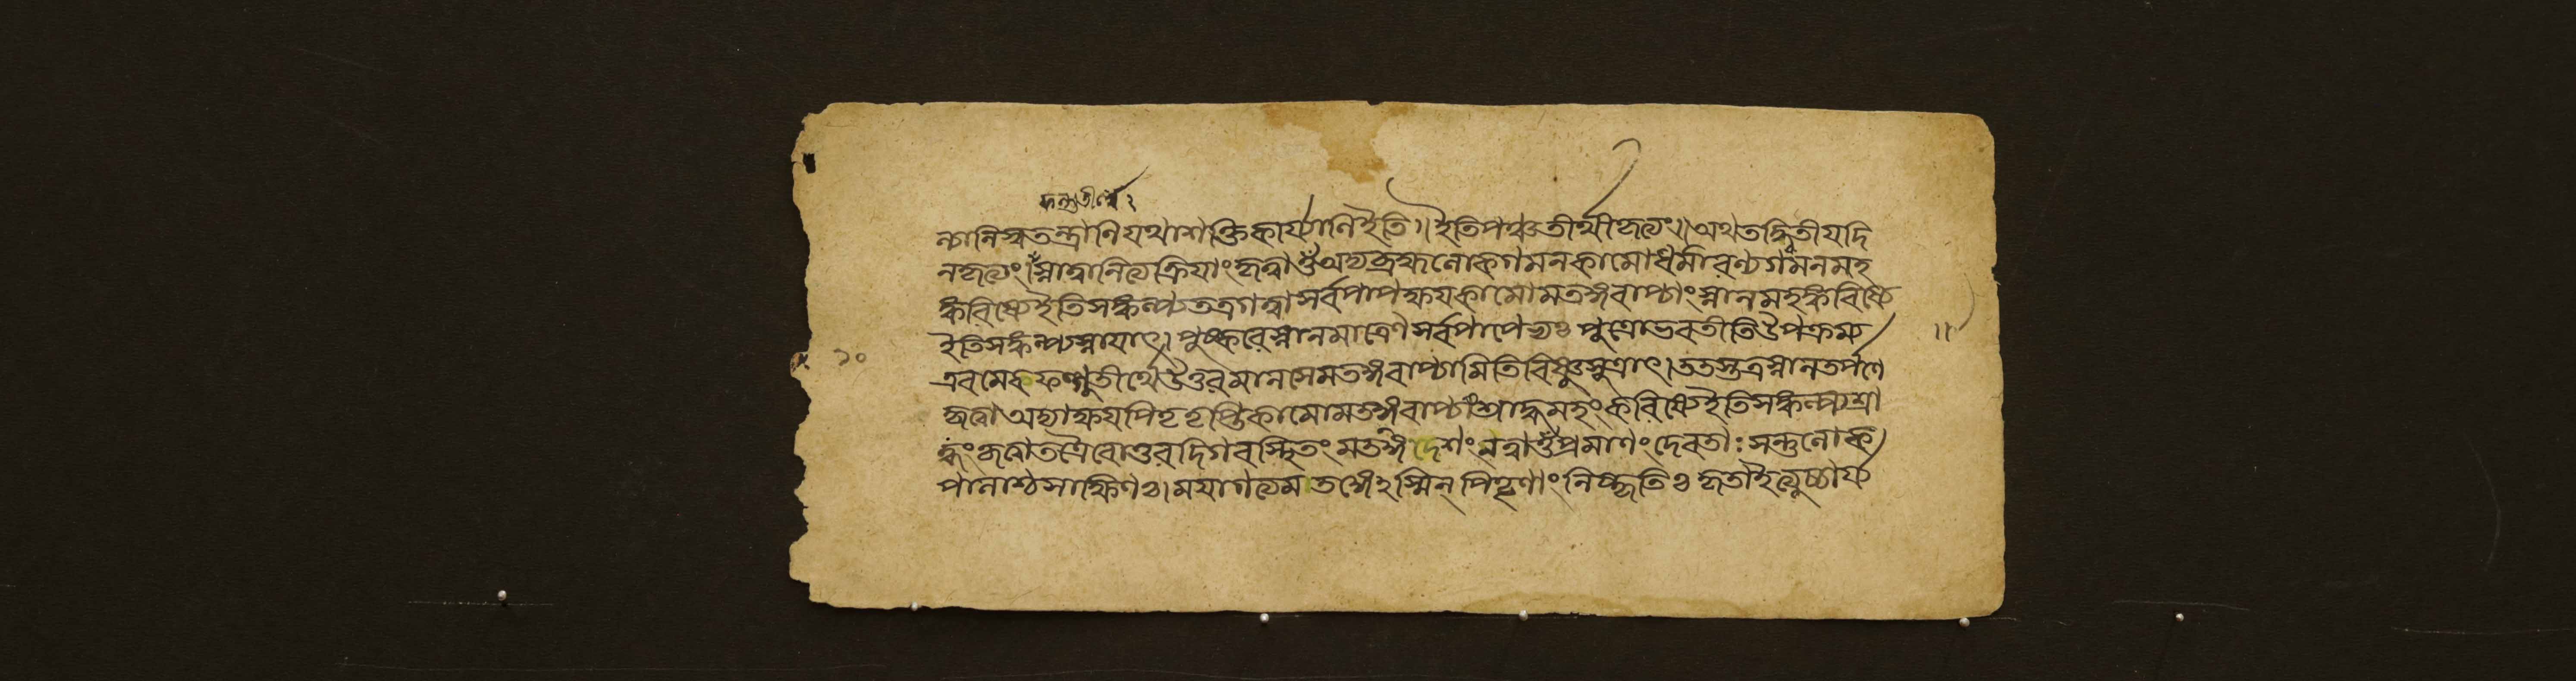 ফল্গুতীর্থে
ন্যানিস্বতন্ত্রাণিযথাশক্তিকার্যাণিইতি॥ইতিপঞ্চতীর্থীকৃত্যং॥অথতদ্দ্বিতীযদি
নকৃত্যং।স্নাত্বানিত্যক্রিযাংকৃত্বাওঁঅদ্যব্রহ্মলোকগমনকামোধর্মারণ্যগমনমহ
ঙ্করিষ্যেইতিসঙ্কল্প্যতত্রগত্বাসর্বপাপক্ষযকামোমতঙ্গবাপ্যাংস্নানমহঙ্করিষ্যে
ইতিসঙ্কল্প্যস্নাযাৎ।পুষ্করেস্নানমাত্রেণসর্বপাপেভ্যঃপুত্রোভবতীতিউপক্রম্য
এবমেবফল্গুতীর্থেউত্তরমানসেমতঙ্গবাপ্যামিতিবিষ্ণুসূত্রাৎ।ততস্তত্রস্নানতর্পণে
কৃত্বাঅদ্যাক্ষযপিতৃতৃপ্তিকামোমতঙ্গবাপ্যাংশ্রাদ্ধমহংকরিষ্যেইতিসঙ্কল্প্যশ্রা
দ্ধংকৃত্বাতত্রৈবোত্তরদিগবস্থিতংমতঙ্গেশংনত্বাওঁপ্রমাণংদেবতাঃসন্তুলোক
পালাশ্চসাক্ষিণঃ।মযাগত্যমতঙ্গেঽস্মিন্পিতৄণাংনিষ্কৃতিঃকৃতাইত্যুচ্চার্য
২০